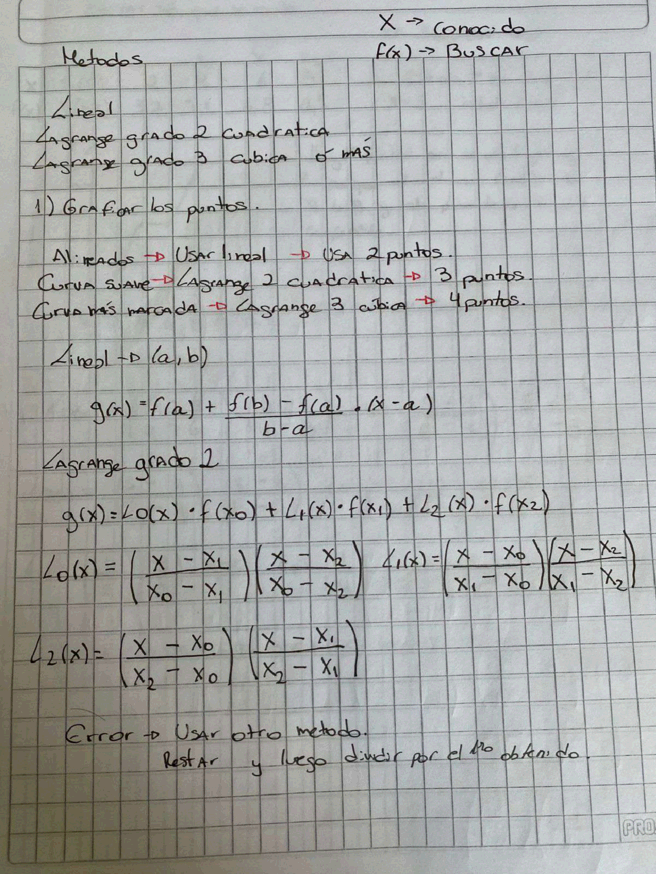 X → conocido
f(x) → BUSCAR
Metodos
Lineal
Lagrange grado 2 cuadratica
Lagrange grado 3 cubica ó más
1) Graficar los puntos.
Alineados → Usar lineal → Usa 2 puntos.
Curva suave → Lagrange 2 cuadratica → 3 puntos.
Curva más marcada → Lagrange 3 cúbica → 4 puntos.
Lineal → (a,b)
g(x) = f(a) + \frac{f(b) - f(a)}{b-a} . (x-a)
Lagrange grado 2
g(x) = L0(x) · f(x0) + L1(x) · f(x1) + L2(x) · f(x2)
L0(x) = (\frac{x - x1}{x0 - x1}) (\frac{x - x2}{x0 - x2}) L1(x) = (\frac{x - x0}{x1 - x0}) (\frac{x - x2}{x1 - x2})
L2(x) = (\frac{x - x0}{x2 - x0}) (\frac{x - x1}{x2 - x1})
Error → Usar otro metodo.
Restar y luego dividir por el obtenido.
PRO